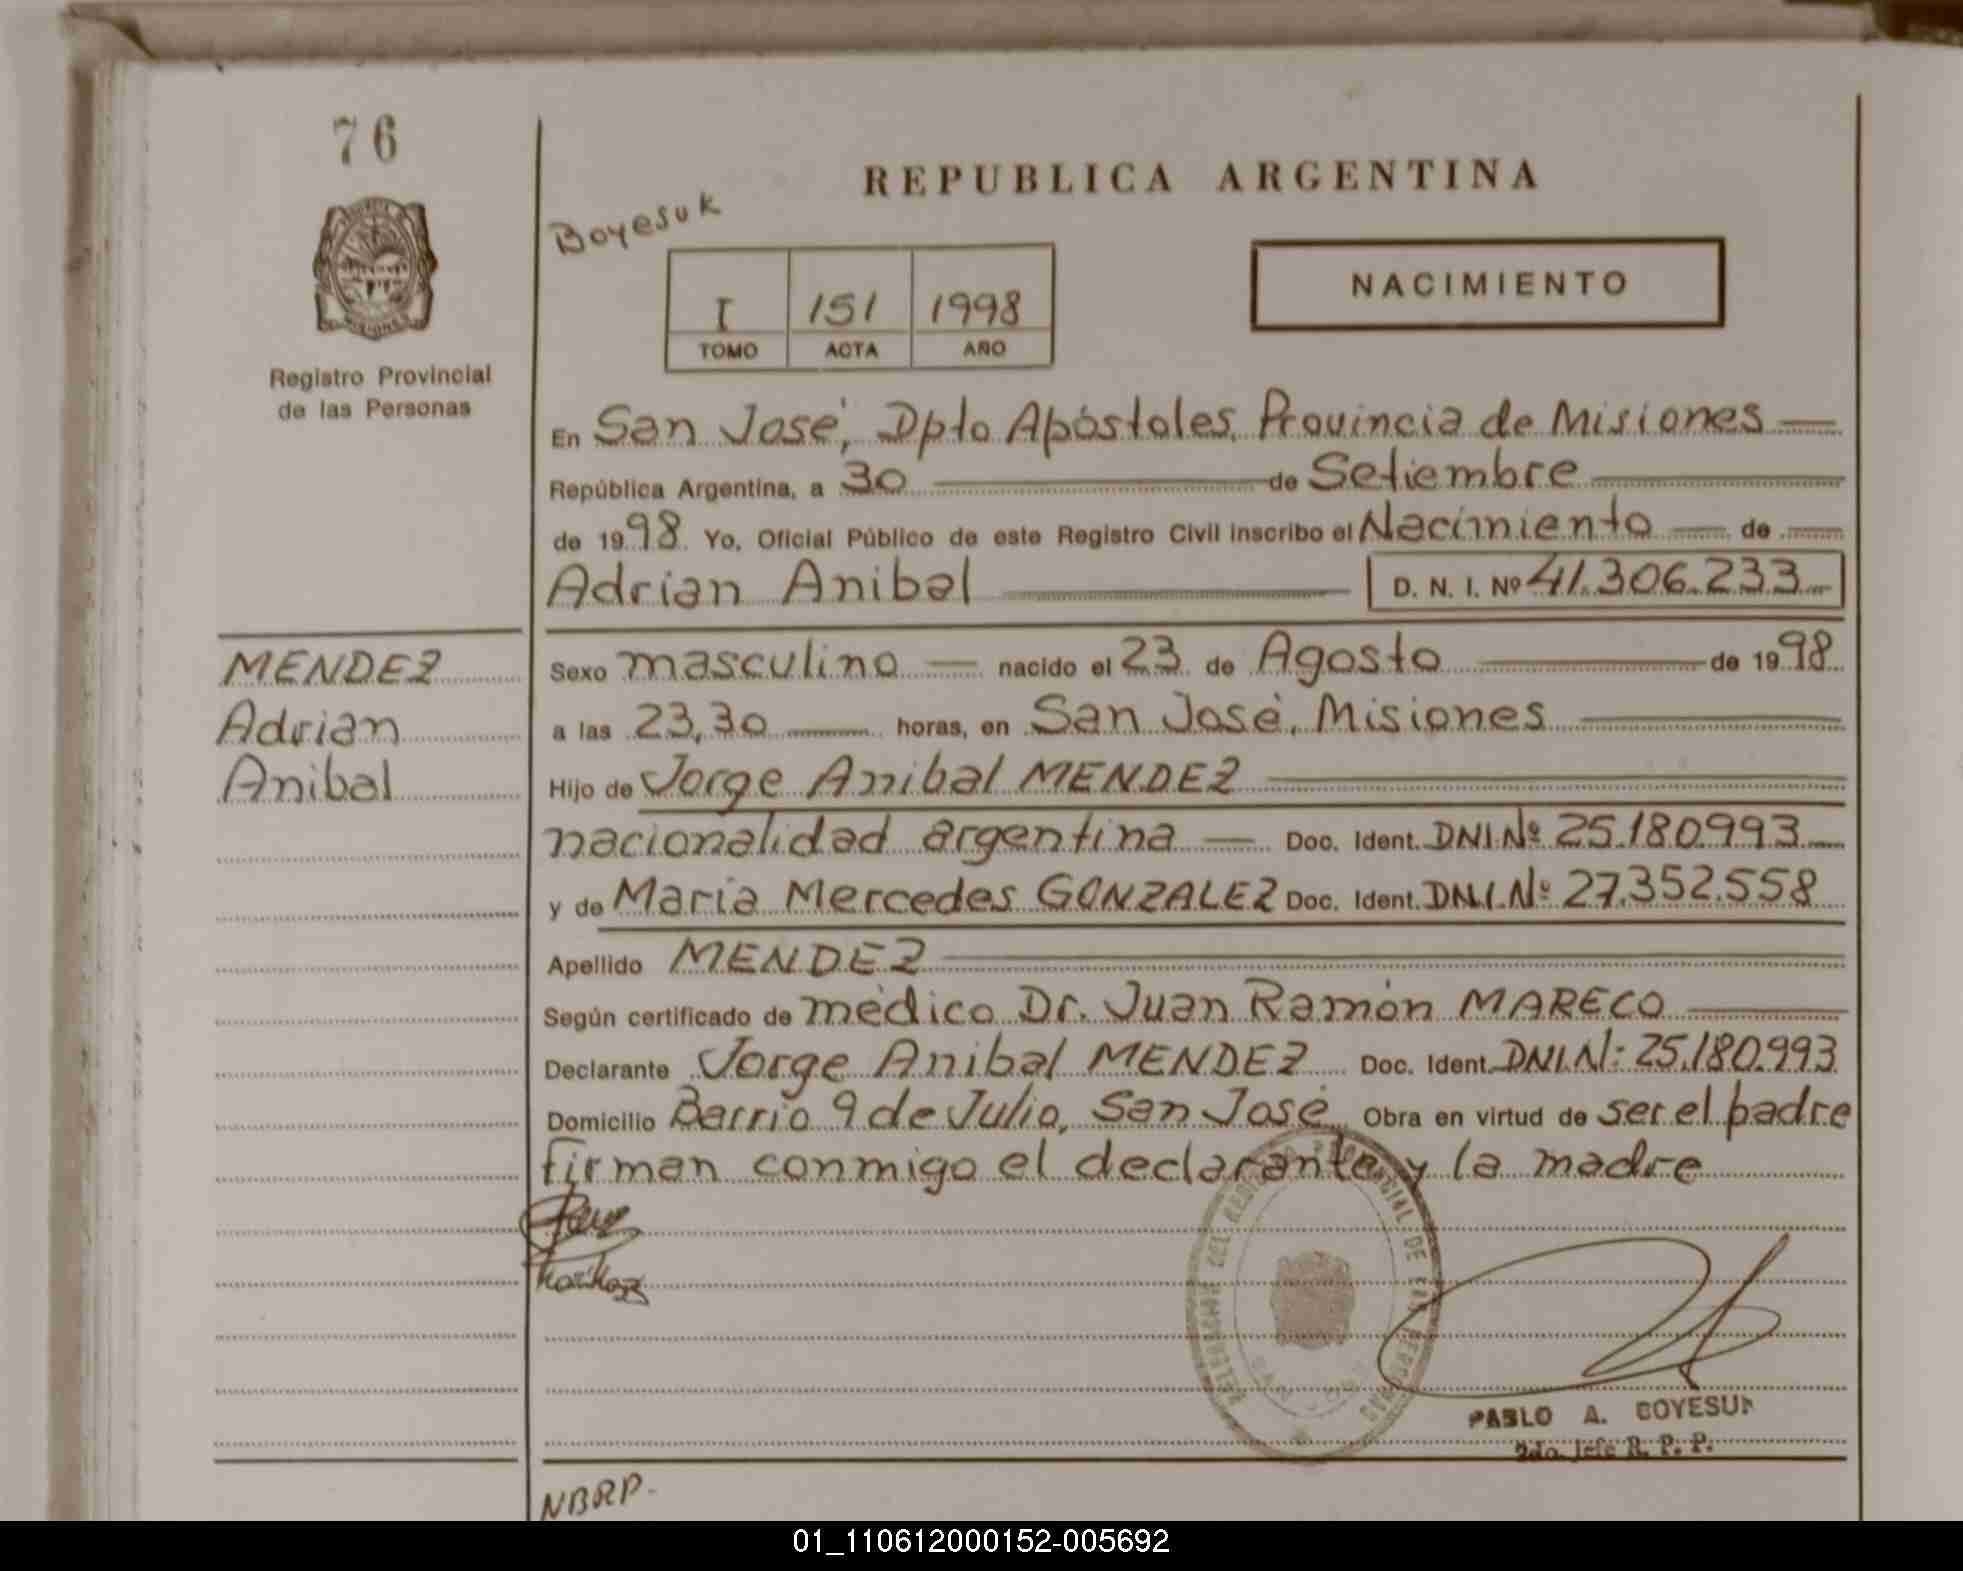 76
REPUBLICA ARGENTINA
Boyesuk
NACIMIENTO
I 151 1998
TOMO ACTA AÑO
Registro Provincial
de las Personas
En San José, Dpto Apóstoles, Provincia de Misiones
República Argentina, a 30 de Setiembre
de 1998 Yo, Oficial Público de este Registro Civil inscribo el Nacimiento de
Adrian Anibal D. N. I. Nº 41.306.233
MENDEZ
Adrian
Anibal
Sexo masculino nacido el 23 de Agosto de 1998
a las 23,30 horas, en San José, Misiones
Hijo de Jorge Anibal MENDEZ
nacionalidad argentina Doc. Ident. DNI.Nº 25.180.993
y de Maria Mercedes GONZALEZ Doc. Ident. DNI.Nº 27.352.558
Apellido MENDEZ
Según certificado de médico Dr. Juan Ramón MARECO
Declarante Jorge Anibal MENDEZ Doc. Ident. DNI.N: 25.180.993
Domicilio Barrio 9 de Julio, San José Obra en virtud de ser el padre
firman conmigo el declarante y la madre
PABLO A. BOYESUK
2do. Jefe R. P. P.
NBRP.
01_110612000152-005692